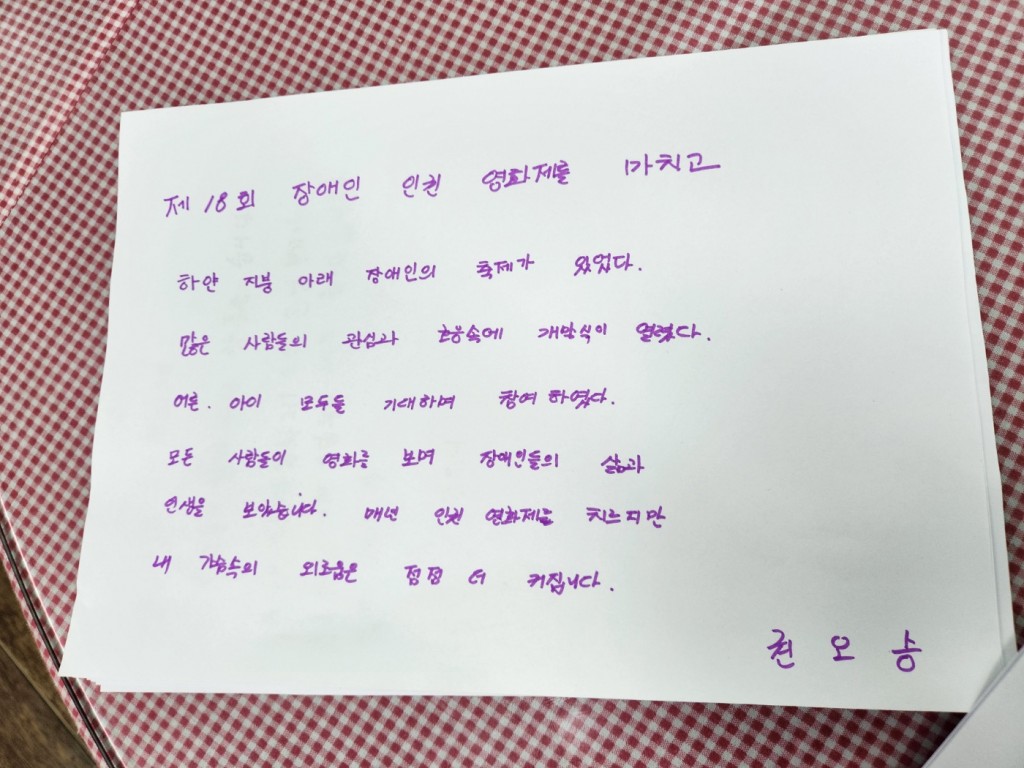 제 18회 장애인 인권 영화제를 마치고
하얀 지붕 아래 장애인의 축제가 있었다.
많은 사람들의 관심과 호응속에 개막식이 열렸다.
어른. 아이 모두들 기대하며 참여 하였다.
모든 사람들이 영화를 보며 장애인들의 삶과
인생을 보았습니다. 매년 인권 영화제를 치르지만
내 가슴속의 외로움은 점점 더 커집니다.
권오승